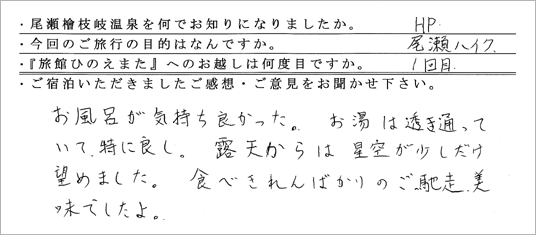 ・尾瀬檜枝岐温泉を何でお知りになりましたか。 HP.
・今回のご旅行の目的はなんですか。 尾瀬ハイク.
・『旅館ひのえまた』へのお越しは何度目ですか。 1回目.
・ご宿泊いただきましたご感想・ご意見をお聞かせ下さい。
お風呂が気持ち良かった。 お湯は透き通って
いて、特に良し。 露天からは星空が少しだけ
望めました。 食べきれんばかりのご馳走、美
味でしたよ。